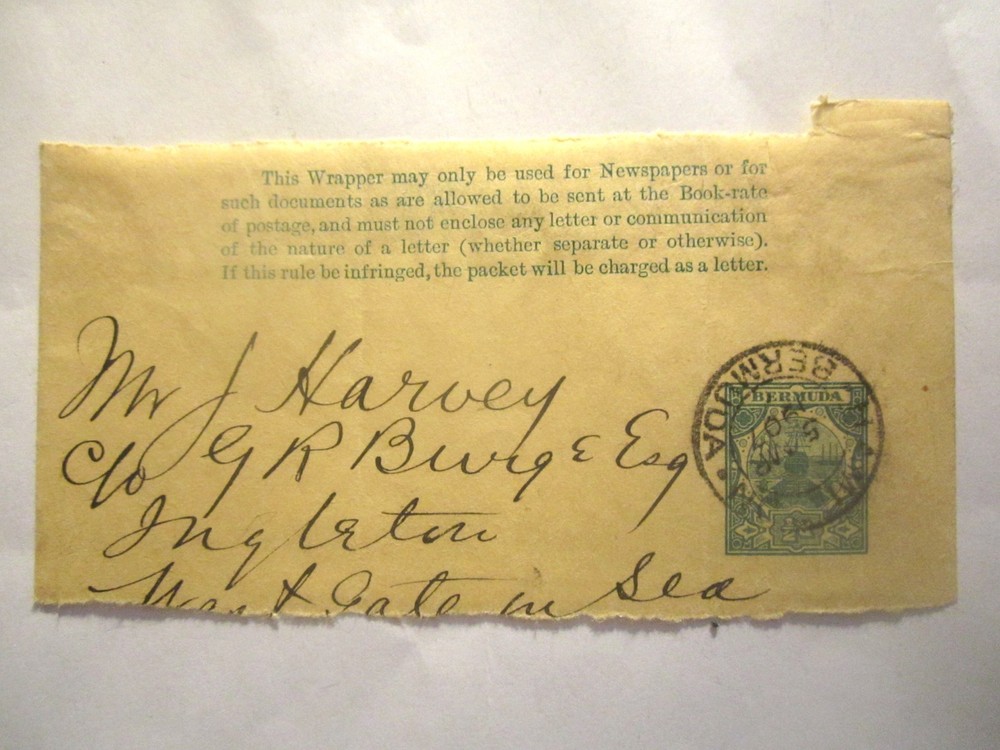 This Wrapper may only be used for Newspapers or for
such documents as are allowed to be sent at the Book-rate
of postage, and must not enclose any letter or communication
of the nature of a letter (whether separate or otherwise).
If this rule be infringed, the packet will be charged as a letter.
Mr J Harvey
C/o G R Burge Esq
Ingleton
West Gate on Sea
BERMUDA
BERMUDA